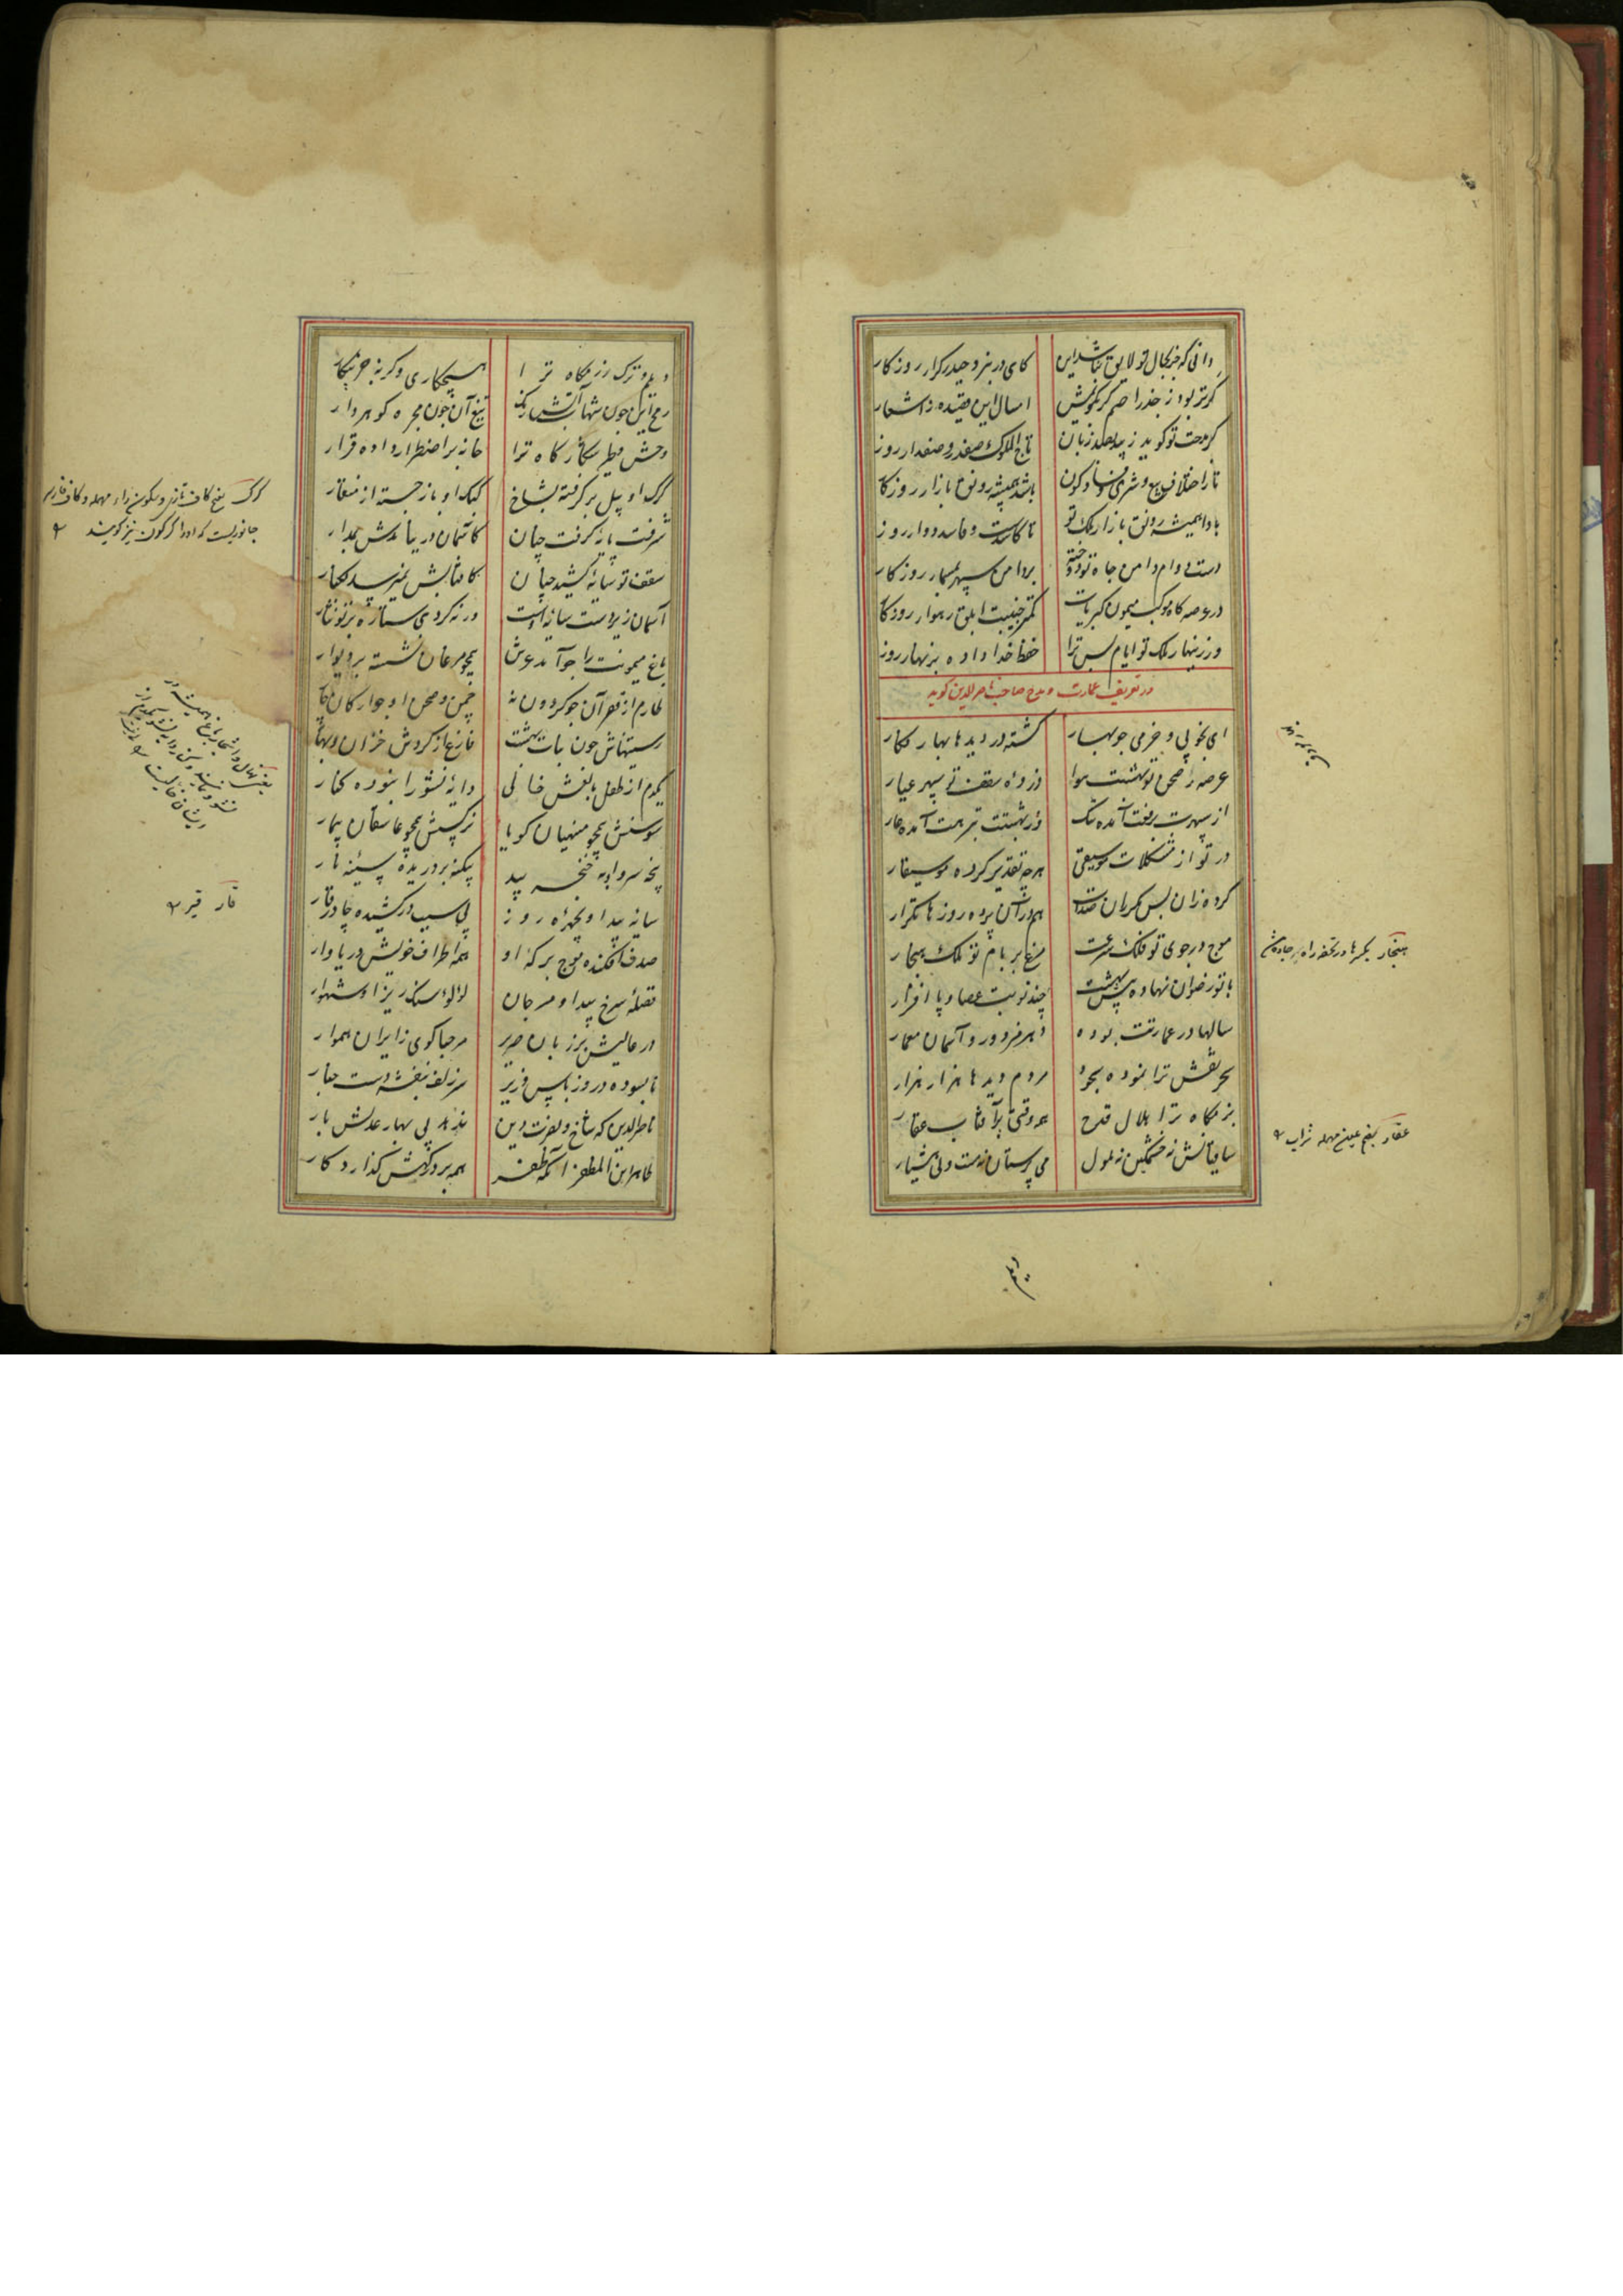 دانی که جز بحال تو لایق نباشد این کای در نبرد حیدر کرار روزکار
کرتر بود ز جذر اصم کر بکویمش امسال این قصیده ز اشعار
کر مدحت تو کوید زیبد بصد زبان تاج الملوک صفدر و صفدار روز
تا ز اختلاف بیع و شری فساد و کون باشد همیشه رونق بازار روزکا
بادا همیشه رونق بازار ملک تو تا کاسدست و فاسد دوار روز
دست دوام دامن جاه تو دوخته بر دامن سپهر بمسمار روزکار
در عرصه کاه موکب میمون کبریات کمتر جنیبت ابلق رهوار روزکا
ور زینهار ملک تو ایام بس ترا حفظ خدا داده بزنهار روز
در تعریف عمارت و مدح صاحب ناصرالدین کوید
ای بخوبی و خرمی چو بهار کشته در دیدها بهار نکار
عرصهٔ صحن تو بهشت هوا ذروهٔ سقف تو سپهر عیار
از سپهرت برفعت آمده ننک وز بهشتت بنزهت آمده عار
در تو از مشکلات موسیقی هرچه تقدیر کرده موسیقار
کرده زان پس مکرران صدات هم در آن پرده روزها تکرار
موج در جوی تو فلک سرعت مرغ بر بام تو ملک هنجار
با تو رضوان نهاده پیش بهشت چند نوبت عصا و پا افزار
سالها در عمارتت بوده دهر مزدور و آسمان معمار
بحر نقش ترا نموده سجود مردم دیدها هزار هزار
بزمکاه ترا هلال قدح همه وقتی پر آفتاب عقار
ساقیانش نه خشمکین نه ملول می پرستانش مست ولی هشیار
هنجار بکسر ها در تحفه راه جاده
عقار بضم عین مهمله شراب
دیلم
دیلم و ترک رزمکاه ترا هیچ کاری دکر نه جز پیکار
رمح این چون شهاب آتش رنک تیغ آن چون مجره کوهردار
وحش و طیر شکارکاه ترا جان بر اضطرار داده قرار
کرک او پیل برکرفته بشاخ کبک او باز جسته از منقار
شرفت پایه کرفت چنان کاسمان در پیاده‌ش بمدار
سقف تو سایه کشید چنان کافتابش نمی‌رسد بکنار
آسمان زیر دست سایه است ورنه کردی ستاره بر تو نثار
باغ میمونت را چو آمد عرش همچو مرغان نشسته بر دیوار
طارم از قصر آن چو کردون نه چمن و صحن او چو ارکان چا
رستنهاش چون نبات بهشت فارغ از کردش خزان و بهار
یکدم از طفل و بالغش خالی دایهٔ نشو را نبوده کنار
سوسنش همچو منهیان کویا نرکسش همچو عاشقان بیمار
پنجهٔ سرو او به خنجر بید بیکنه بردریده سینهٔ نار
سایهٔ بید او بچهره روز پی سبب درکشیده چادر قار
صدف افکنده موج برکهٔ او همه اطراف خویش دریاوار
فضلهٔ سرخ بید او مرجان لؤلؤ سنک ریزه شهوار
در عالیش بر زبان صریر مرحبا کوی زایران هموار
نابسوده در روز باس وزیر سر زلف بنفشه دست چنار
ناصرالدین که شاخ دولت و دین ندهد پی بهار عدلش بار
طاهر ابن المظفر آنکه ظفر همه بر درکهش کذارد کار
کرک بفتح کاف تازی و سکون راء مهمله و کاف فارسی
جانوریست که او را کرکدن نیز کویند
قار قیر